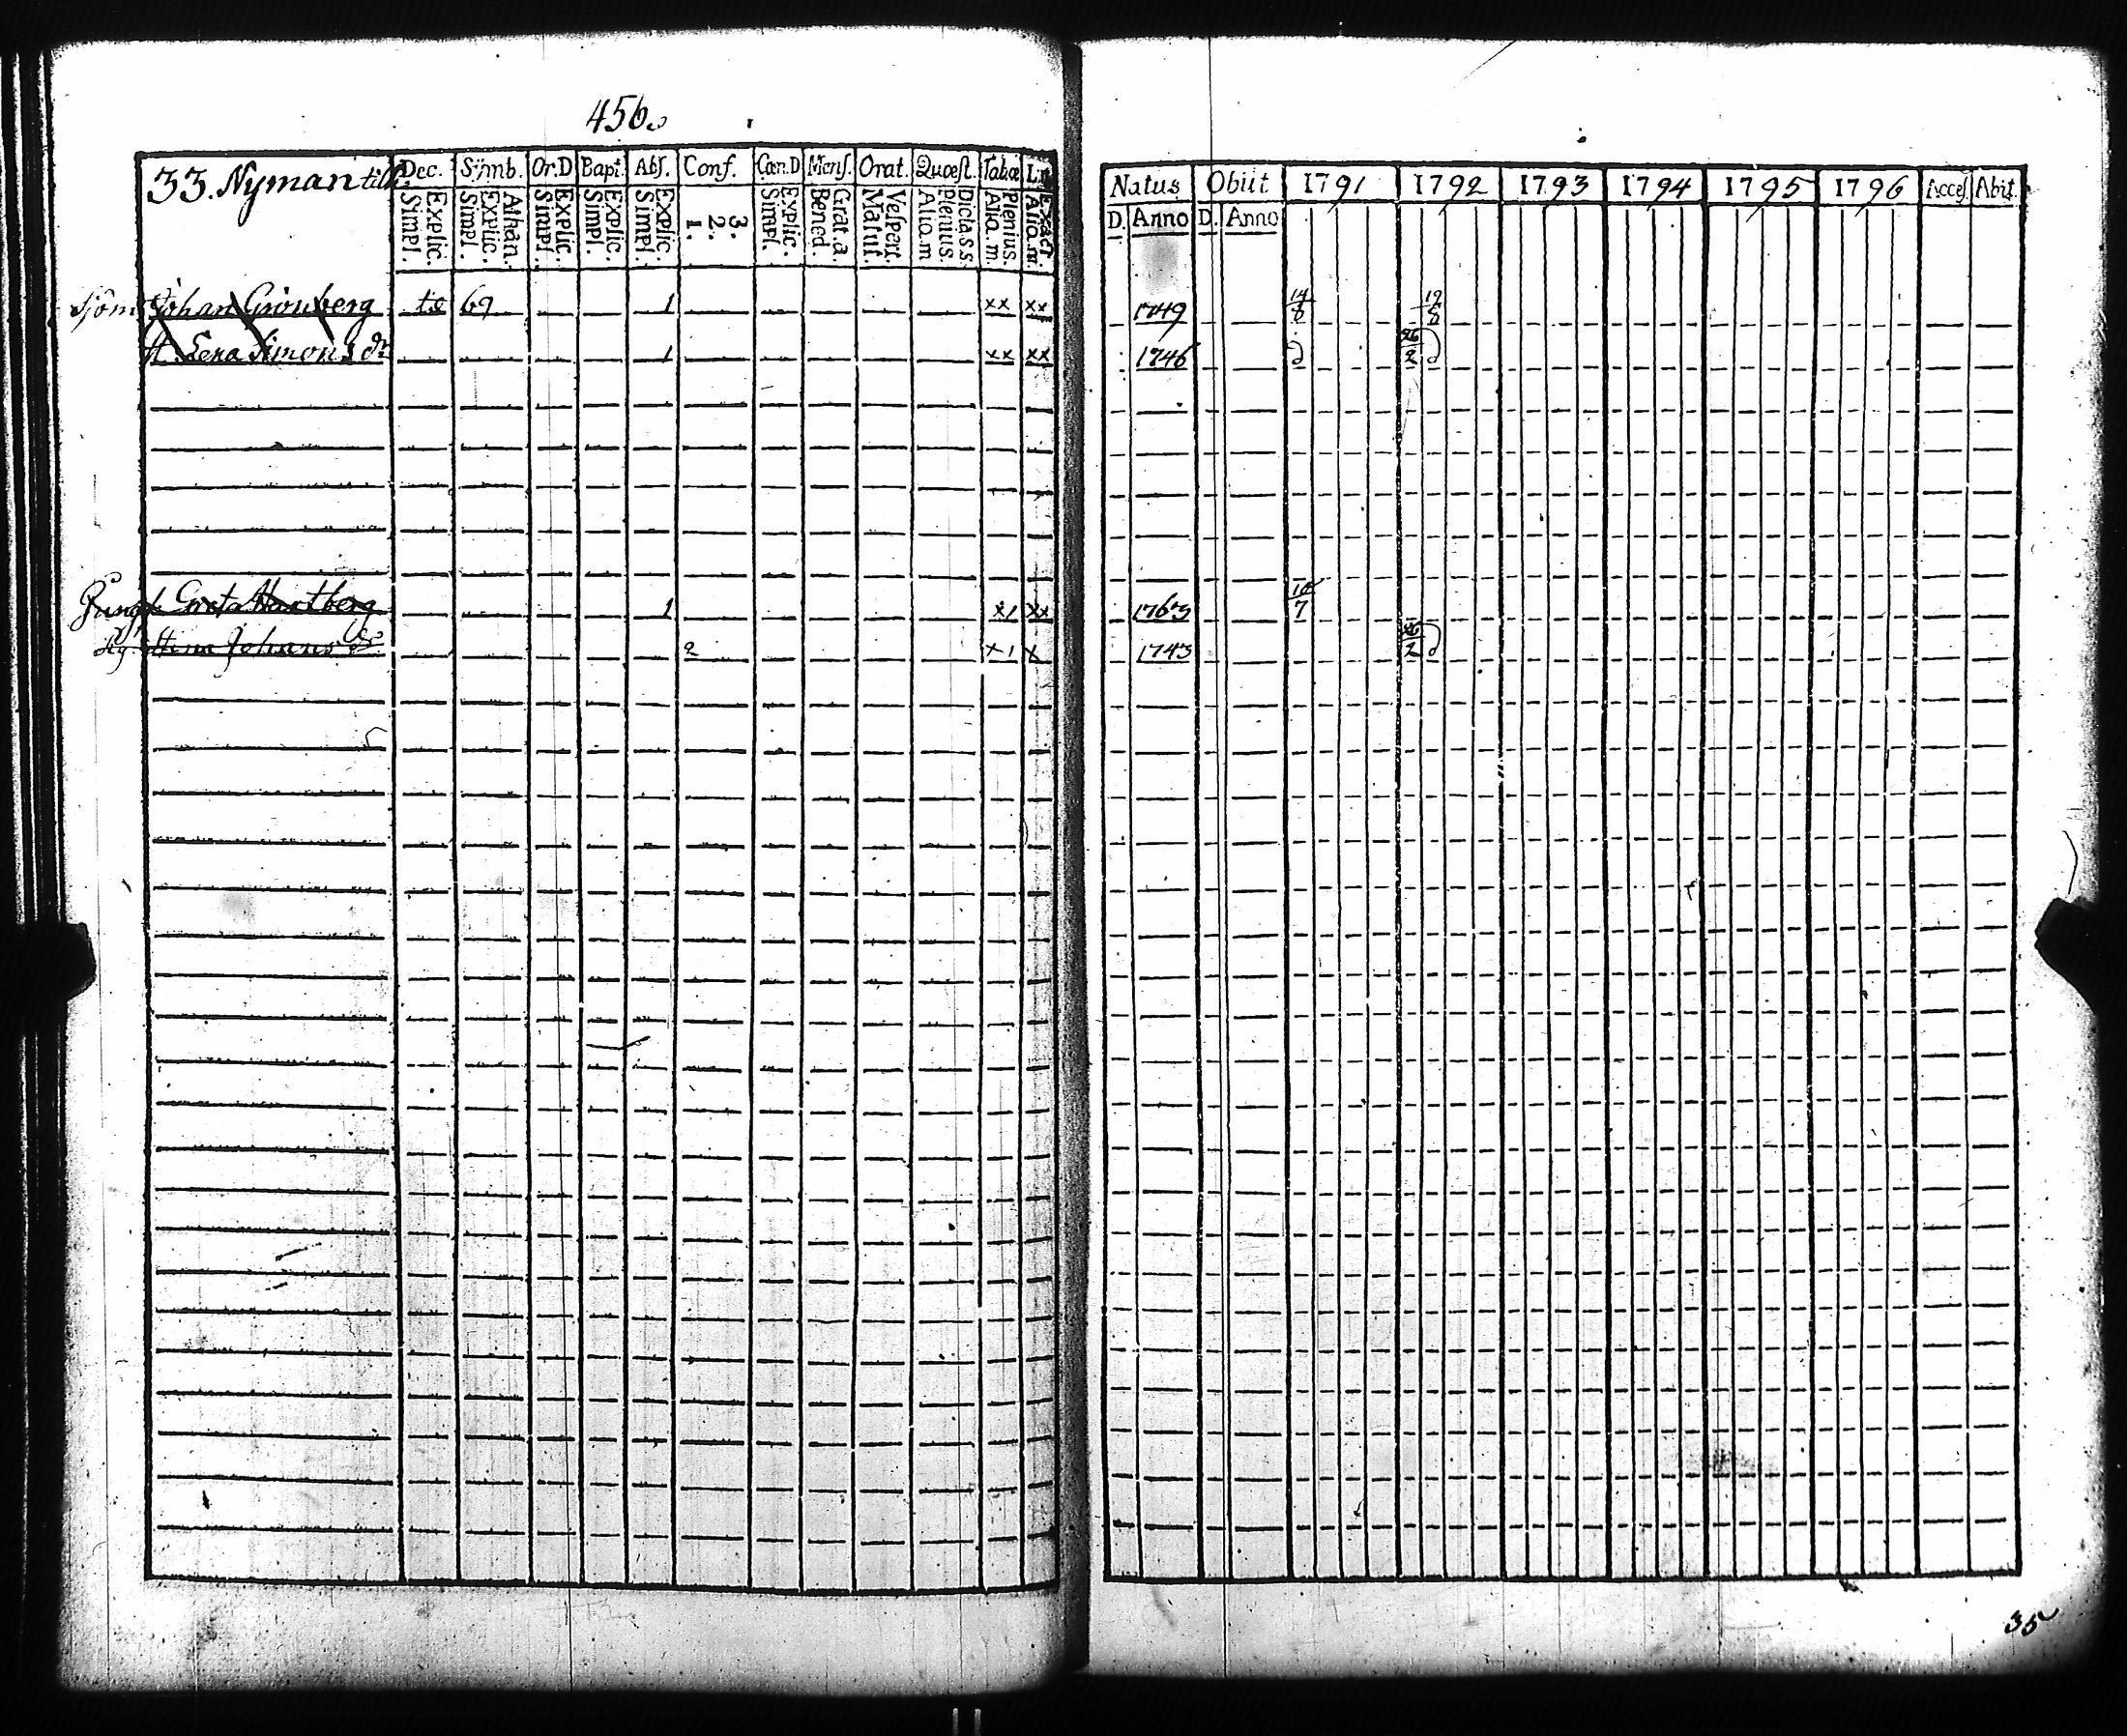 456.
33. Nyman till. Dec. Sÿmb. Or.D Bapt. Abs. Conf. Cæn.D Mens. Orat. Quæst. Tabæ
Explic. Simpl. Athan. Explic. Simpl. Explic. Simpl. Explic. Simpl. Explic. Simpl. 3. 2. 1. Explic. Simpl. Grat.a. Bened. Vespert. Matut. Dicta S S. Plenius. Alio.m Plenius. Alia.m. Exact. Alio.m.
Natus Obiit 1791 1792 1793 1794 1795 1796 Acces. Abit.
D. Anno D. Anno
Sjöm Johan Grönberg te 69 1 xx xx 1749 14/8 19/8
H. Lena Simons dr 1 xx xx 1746 26/2
Jungf. Greta Hartberg 1 x1 xx 1763 /7
Stina Johans dr 2 x1 x 1743 26/2
35